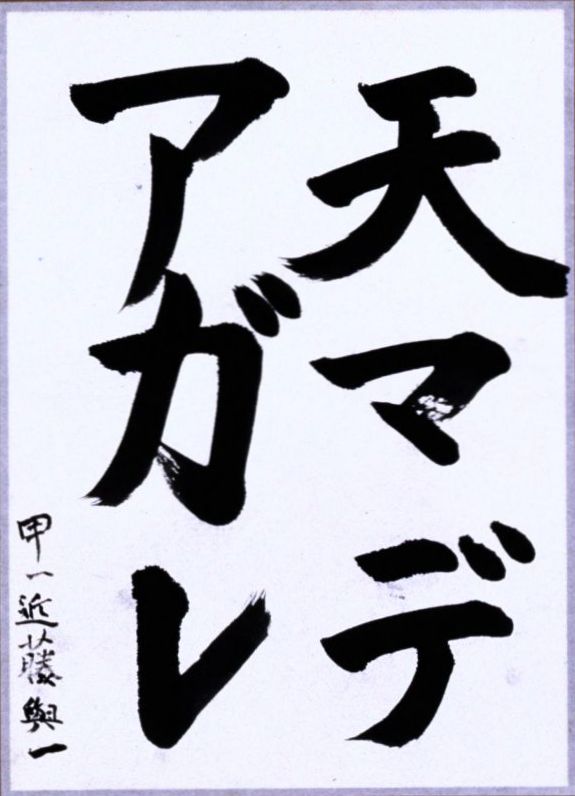 天マデ
アガレ
甲一近藤與一